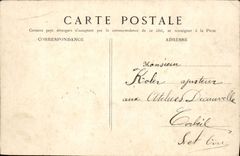 CARTE POSTALE
Certains pays étrangers n'acceptent pas la correspondance de ce côté, se renseigner à la Poste
CORRESPONDANCE ADRESSE
Monsieur
Koler ajusteur
aux Ateliers Decauville
Corbeil
S et Oise